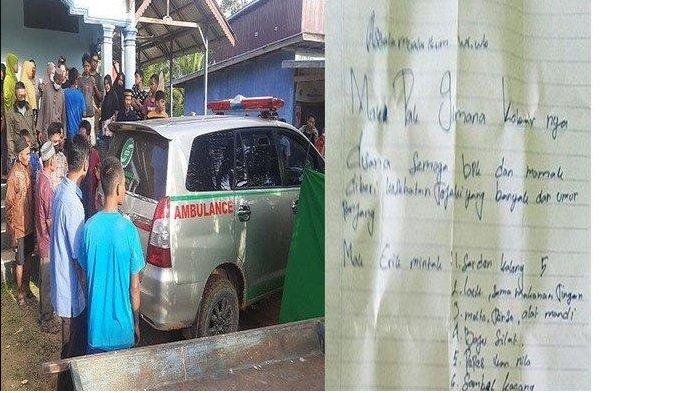 AMBULANCE
Assalamualaikum w.wb
Mak Pak Gimana kabar nya
disana semoga bpk dan mamak
diberi kesehatan rezeki yang banyak dan umur
panjang
Mak Erik mintak : 1. Sarden kaleng 5
2. lauk, sama makanan ringan
3. alat mandi
4. Baju silat.
5. ikan nila
6. Sambal kacang